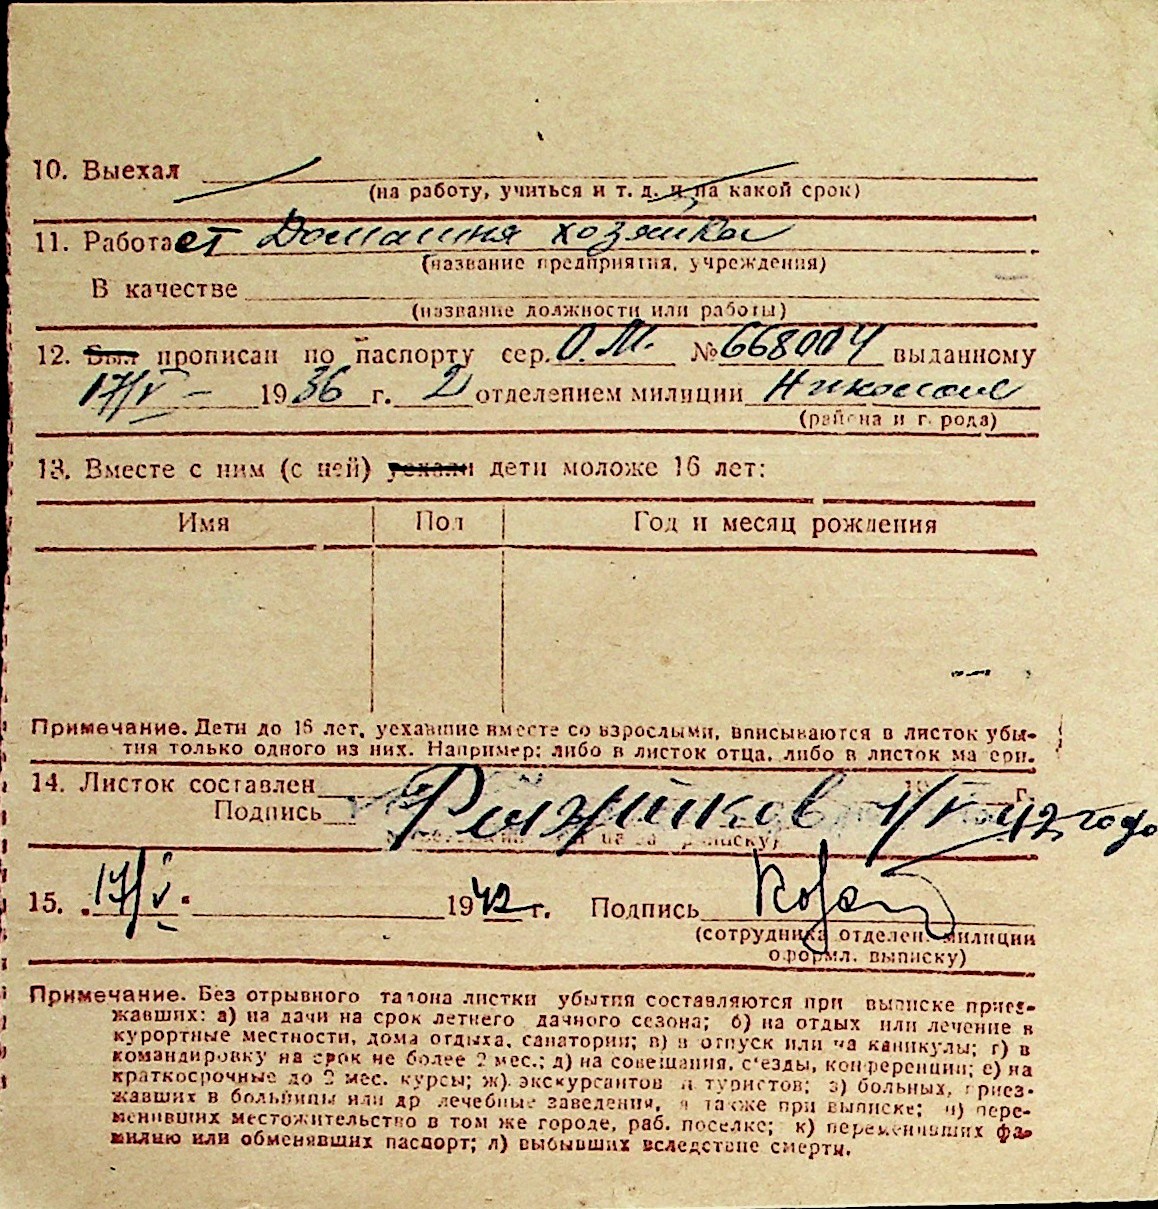 10. Выехал
(на работу, учиться и т. д. и на какой срок)
11. Работает Домашняя хозяйка
(название предприятия, учреждения)
В качестве
(название должности или работы)
12. Был прописан по паспорту сер. О.М. № 668004 выданному
17/V - 1936 г. 2 отделением милиции
(района и города)
13. Вместе с ним (с ней) уехали дети моложе 16 лет:
Имя Пол Год и месяц рождения
Примечание. Дети до 16 лет, уехавшие вместе со взрослыми, вписываются в листок убы-
тия только одного из них. Например: либо в листок отца, либо в листок матери.
14. Листок составлен 19 г.
Подпись 1/V 42 года
15. 17/V. 1942 г. Подпись
(сотрудника отделен. милиции
оформл. выписку)
Примечание. Без отрывного талона листки убытия составляются при выписке приез-
жавших: а) на дачи на срок летнего дачного сезона; б) на отдых или лечение в
курортные местности, дома отдыха, санатории; в) в отпуск или на каникулы; г) в
командировку на срок не более 2 мес.; д) на совещания, с'езды, конференции; е) на
краткосрочные до 2 мес. курсы; ж) экскурсантов и туристов; з) больных, приез-
жавших в больницы или др лечебные заведения, а также при выписке; и) пере-
менивших местожительство в том же городе, раб. поселке; к) переменивших фа-
милию или обменявших паспорт; л) выбывших вследствие смерти.